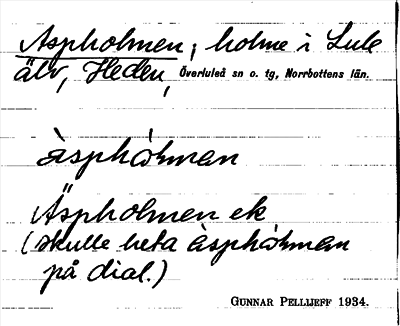 Aspholmen, holme i Lule
älv, Heden, Överluleå sn o. tg, Norrbottens län.
àsphòlman
Äspholmen ek
(skulle heta àsphòlman
på dial.)
GUNNAR PELLIJEFF 1934.